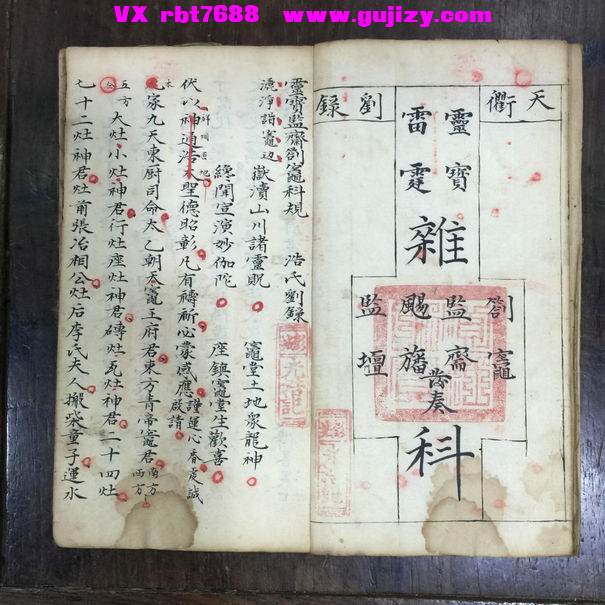 VX rbt7688 www.gujizy.com
天衢
劉錄
靈寶
雷霆
雜
劄竈
監齋
颺旛
監壇
發奏
科
靈寶監齋劄竈科規 浩氏劉錄
漉淨諧竈边 嶽瀆山川諸靈貺 竈堂土地衆龍神
纔聞宣演妙伽陀 座鎮竈堂生歡喜
伏以神通浩大聖德昭彰凡有禱祈必蒙感應謹運心香虔誠啟請
家九天東厨司命太乙朝天竈王府君東方青帝竈君南方西方
五方大灶小灶神君行灶座灶神君磚灶瓦灶神君二十四灶
七十二灶神君灶前張冶相公灶后李氏夫人搬柴童子運水